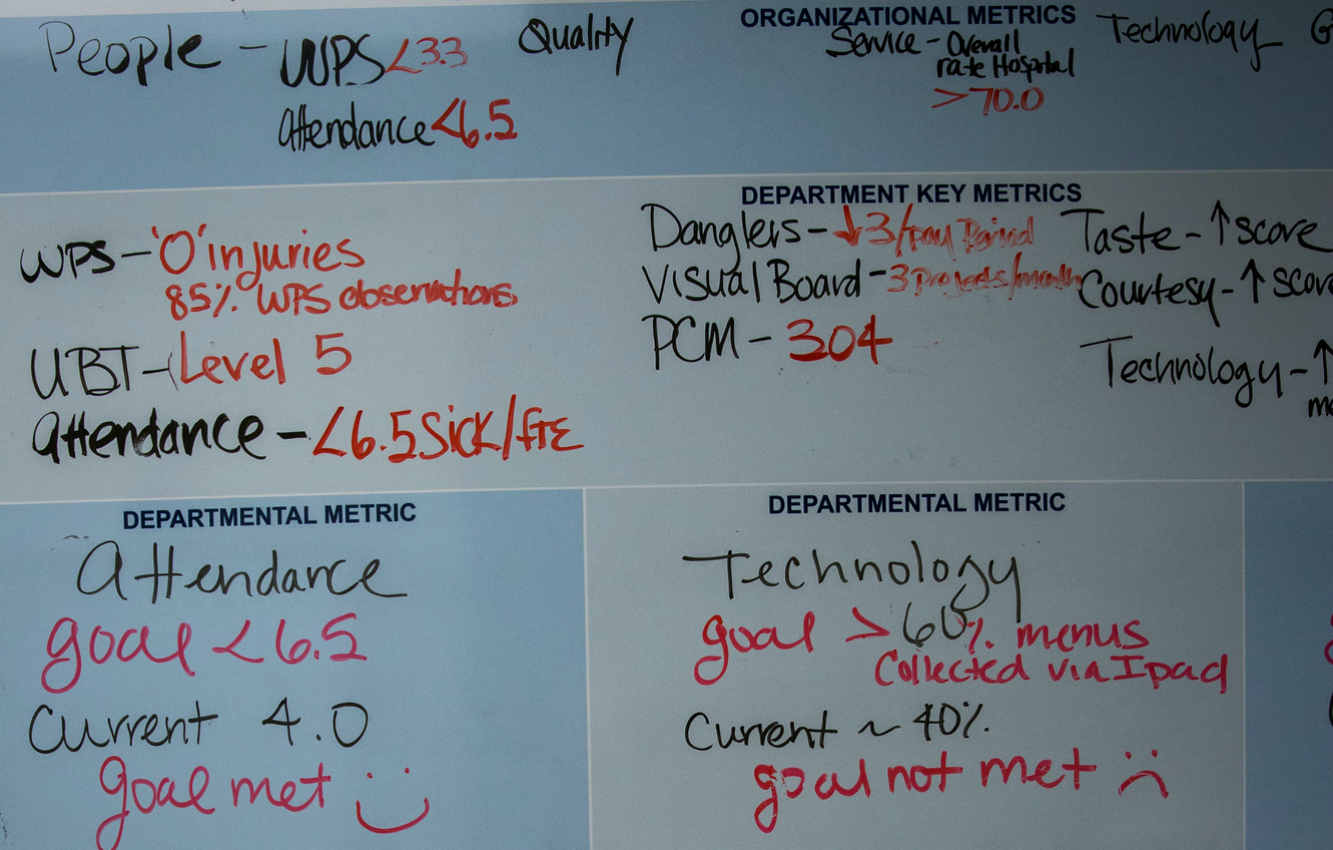 ORGANIZATIONAL METRICS
People - WPS <3.3
Attendance <6.5
Quality
Service - Overall
rate Hospital
>70.0
Technology
DEPARTMENT KEY METRICS
WPS - "0" injuries
85% WPS observations
UBT - Level 5
Attendance - <6.5 Sick/FTE
Danglers - ↓3/pay Period
Visual Board - 3 Projects/month
PCM - 304
Taste - ↑ score
Courtesy - ↑ score
Technology - ↑
DEPARTMENTAL METRIC
Attendance
goal <6.5
Current 4.0
goal met :)
DEPARTMENTAL METRIC
Technology
goal > 60% menus
Collected via Ipad
Current ~ 40%
goal not met :(